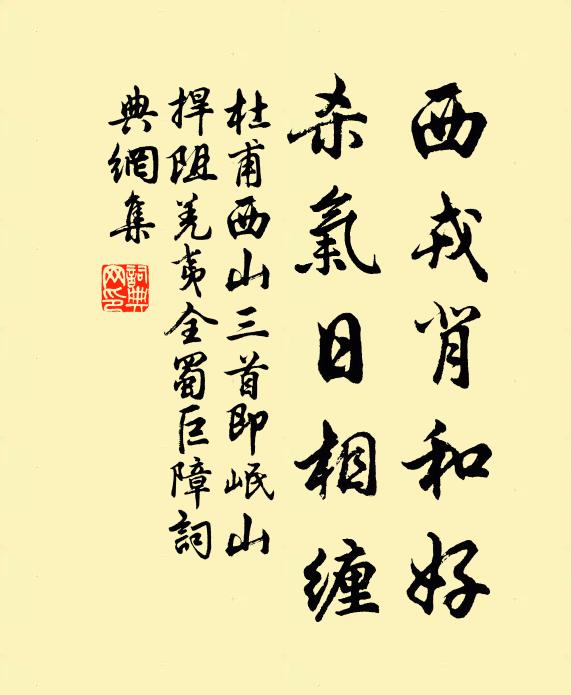 西戎背和好
杀氣日相纏
杜甫西山三首即岷山
捍阻羌夷全蜀巨障詞
典網集
詞典網印